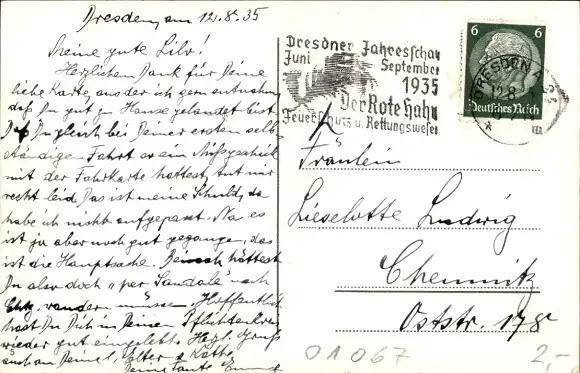 Dresden, am 12.8.35
Meine gute Lilo!
Herzlichen Dank für Deine
liebe Karte, aus der ich gern entnahm,
daß Du gut zu Hause gelandet bist.
Daß Du gleich bei Deiner ersten selb-
ständigen Fahrt so ein Mißgeschick
mit der Fahrkarte hattest, tut mir
recht leid. Das ist meine Schuld, da
habe ich nicht aufgepasst. Na es
ist ja aber noch gut gegange, das
ist die Hauptsache. hättest
Du also doch "per Sandale" nach
wandern müssen. Hoffentlich
hast Du Dich in Deinen Pflichtenkreis
wieder gut eingelebt. Herzl. Gruß
auch an Deine l. Eltern u. Käthe
Deine Tante
Dresdner Jahresschau
Juni September
1935
Der Rote Hahn
Feuerschutz u. Rettungswesen
6 6
Deutsches Reich
DRESDEN A
12.8
Fräulein
Lieselotte Ludwig
Chemnitz
Oststr. 178
01067
2,-